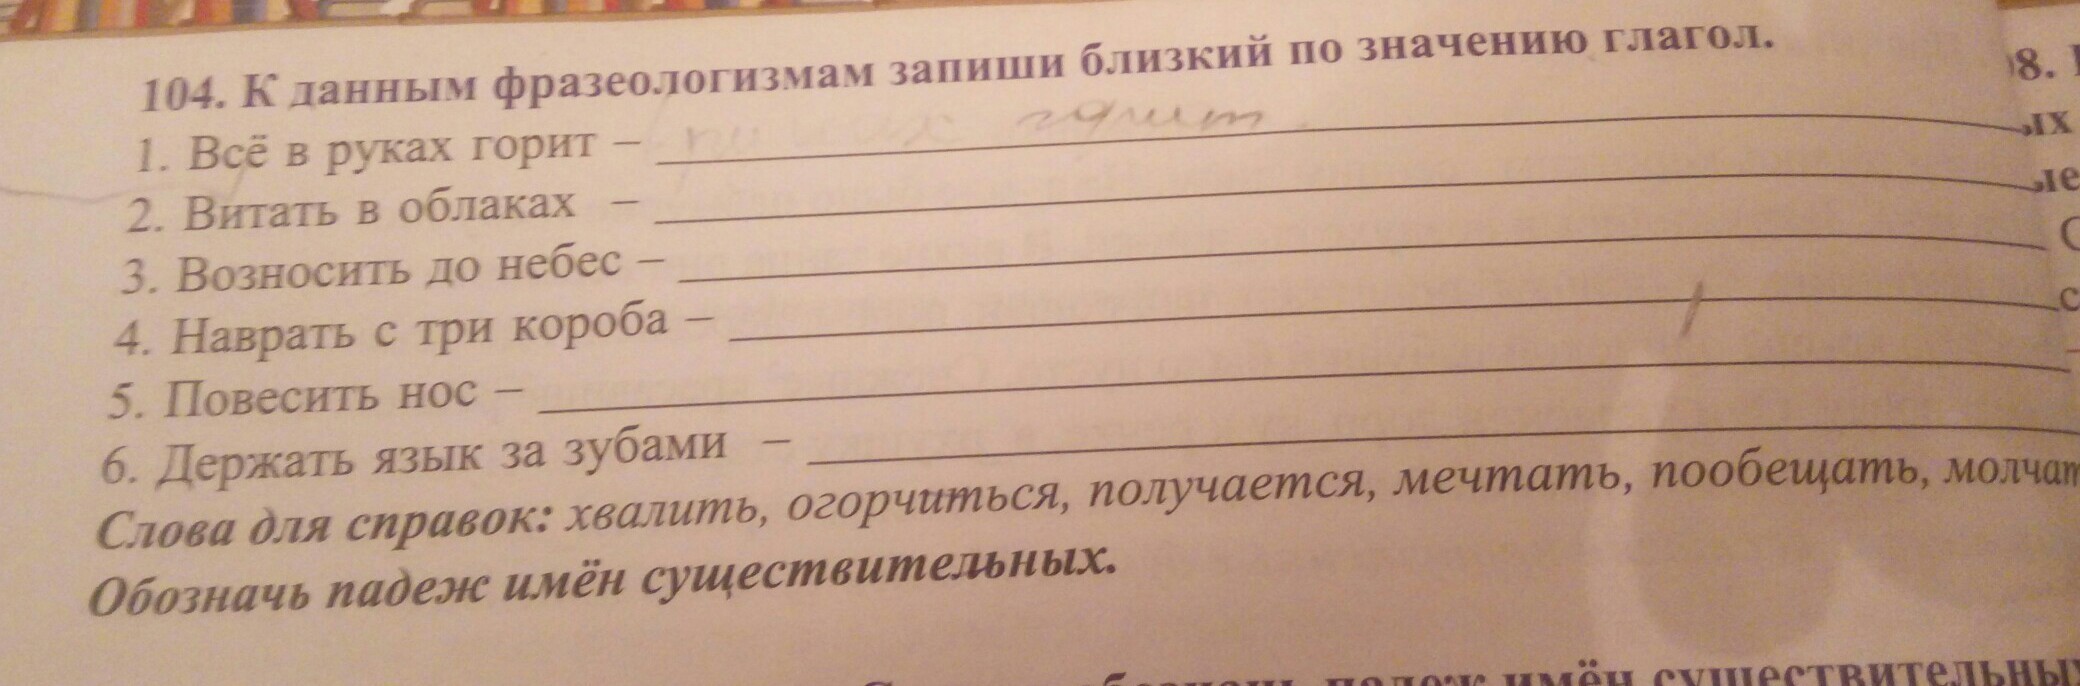 104. К данным фразеологизмам запиши близкий по значению глагол.
1. Всё в руках горит – горит
2. Витать в облаках –
3. Возносить до небес –
4. Наврать с три короба –
5. Повесить нос –
6. Держать язык за зубами –
Слова для справок: хвалить, огорчиться, получается, мечтать, пообещать, молчат
Обозначь падеж имён существительных.
падеж имён существительны
98.
ых
ые
С
с